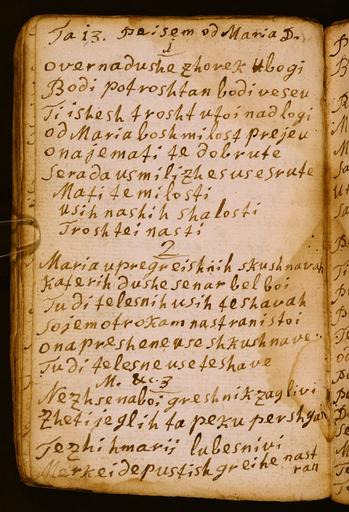 Ta 13. Peisem od Maria D.
1
overnadushe zhovek ubogi
Bodi potroshtan bodi veseu
Ti ishesh trosht utoi nadlogi
od Maria bosh milost prejeu
ona je mati te dobrute
serada usmili zhes use srute
Mati te milosti
usih nashih shalosti
Troshtei nasti
2
Maria upregreishnih skushnavah
katerih dushe senar bel boi
Tudi telesnih usih teshavah
sojem otrokam nastrani stoi
ona preshene use skushnave
Tudi telesne use teshave
M. &c. 3
Nezh se naboi greshnik zaglivi
zheti jeglih ta peku pershgan
Tezhi k marij lubesnivi
Merkei de pustish greihe nast
ran